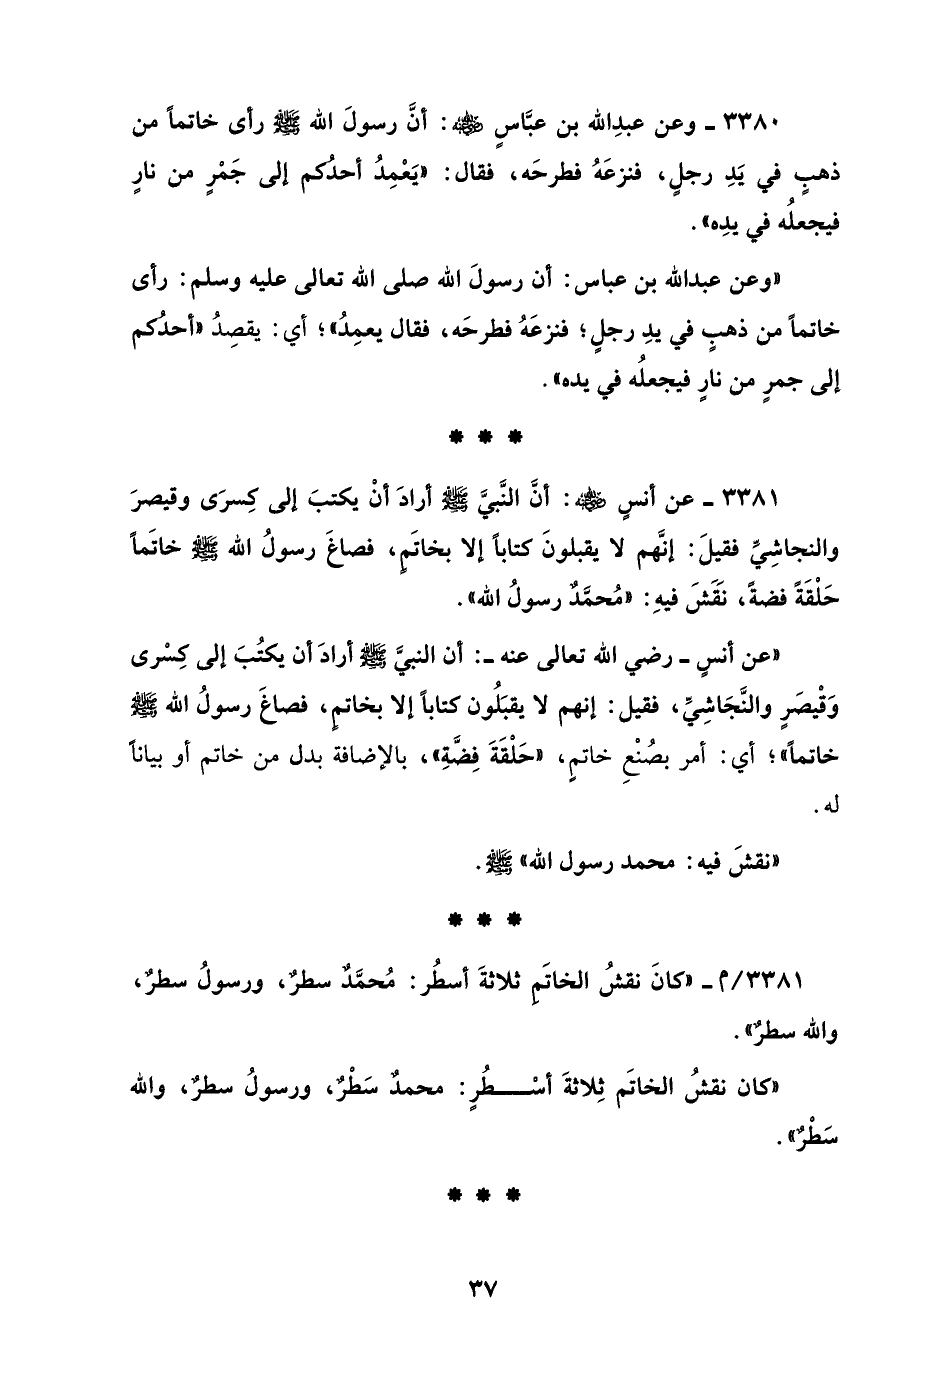 ٣٣٨٠ ـ وعن عبدِالله بن عبَّاسٍ ﵁: أنَّ رسولَ الله ﷺ رأى خاتماً من
ذهبٍ في يَدِ رجلٍ، فنزعَهُ فطرحَه، فقال: «يَعْمِدُ أحدُكم إلى جَمْرٍ من نارٍ
فيجعلُه في يدِه».
«وعن عبدالله بن عباس: أن رسولَ الله صلى الله تعالى عليه وسلم: رأى
خاتماً من ذهبٍ في يدِ رجلٍ؛ فنزعَهُ فطرحَه، فقال يعمِدُ»؛ أي: يقصِدُ «أحدُكم
إلى جمرٍ من نارٍ فيجعلُه في يده».
* * *
٣٣٨١ ـ عن أنسٍ ﵁: أنَّ النَّبيَّ ﷺ أرادَ أنْ يكتبَ إلى كِسرَى وقيصرَ
والنجاشِيِّ فقيلَ: إنَّهم لا يقبلونَ كتاباً إلا بخاتَمٍ، فصاغَ رسولُ الله ﷺ خاتَماً
حَلْقَةً فضةً، نَقَشَ فيهِ: «مُحمَّدٌ رسولُ الله».
«عن أنسٍ ـ رضي الله تعالى عنه ـ: أن النبيَّ ﷺ أرادَ أن يكتُبَ إلى كِسْرى
وَقْيصَرٍ والنَّجَاشِيِّ، فقيل: إنهم لا يقبَلُون كتاباً إلا بخاتمٍ، فصاغَ رسولُ الله ﷺ
خاتماً»؛ أي: أمر بصُنْعِ خاتمٍ، «حَلْقَةَ فِضَّةِ»، بالإضافة بدل من خاتم أو بياناً
له.
«نقشَ فيه: محمد رسول الله» ﷺ.
* * *
٣٣٨١/م ـ «كانَ نقشُ الخاتَمِ ثلاثةَ أسطُرٍ: مُحمَّدٌ سطرٌ، ورسولُ سطرٌ،
والله سطرٌ».
«كان نقشُ الخاتَم ثِلاثةَ أسْـــطُرٍ: محمدٌ سَطْرٌ، ورسولُ سطرٌ، والله
سَطْرٌ».
* * *
٣٧